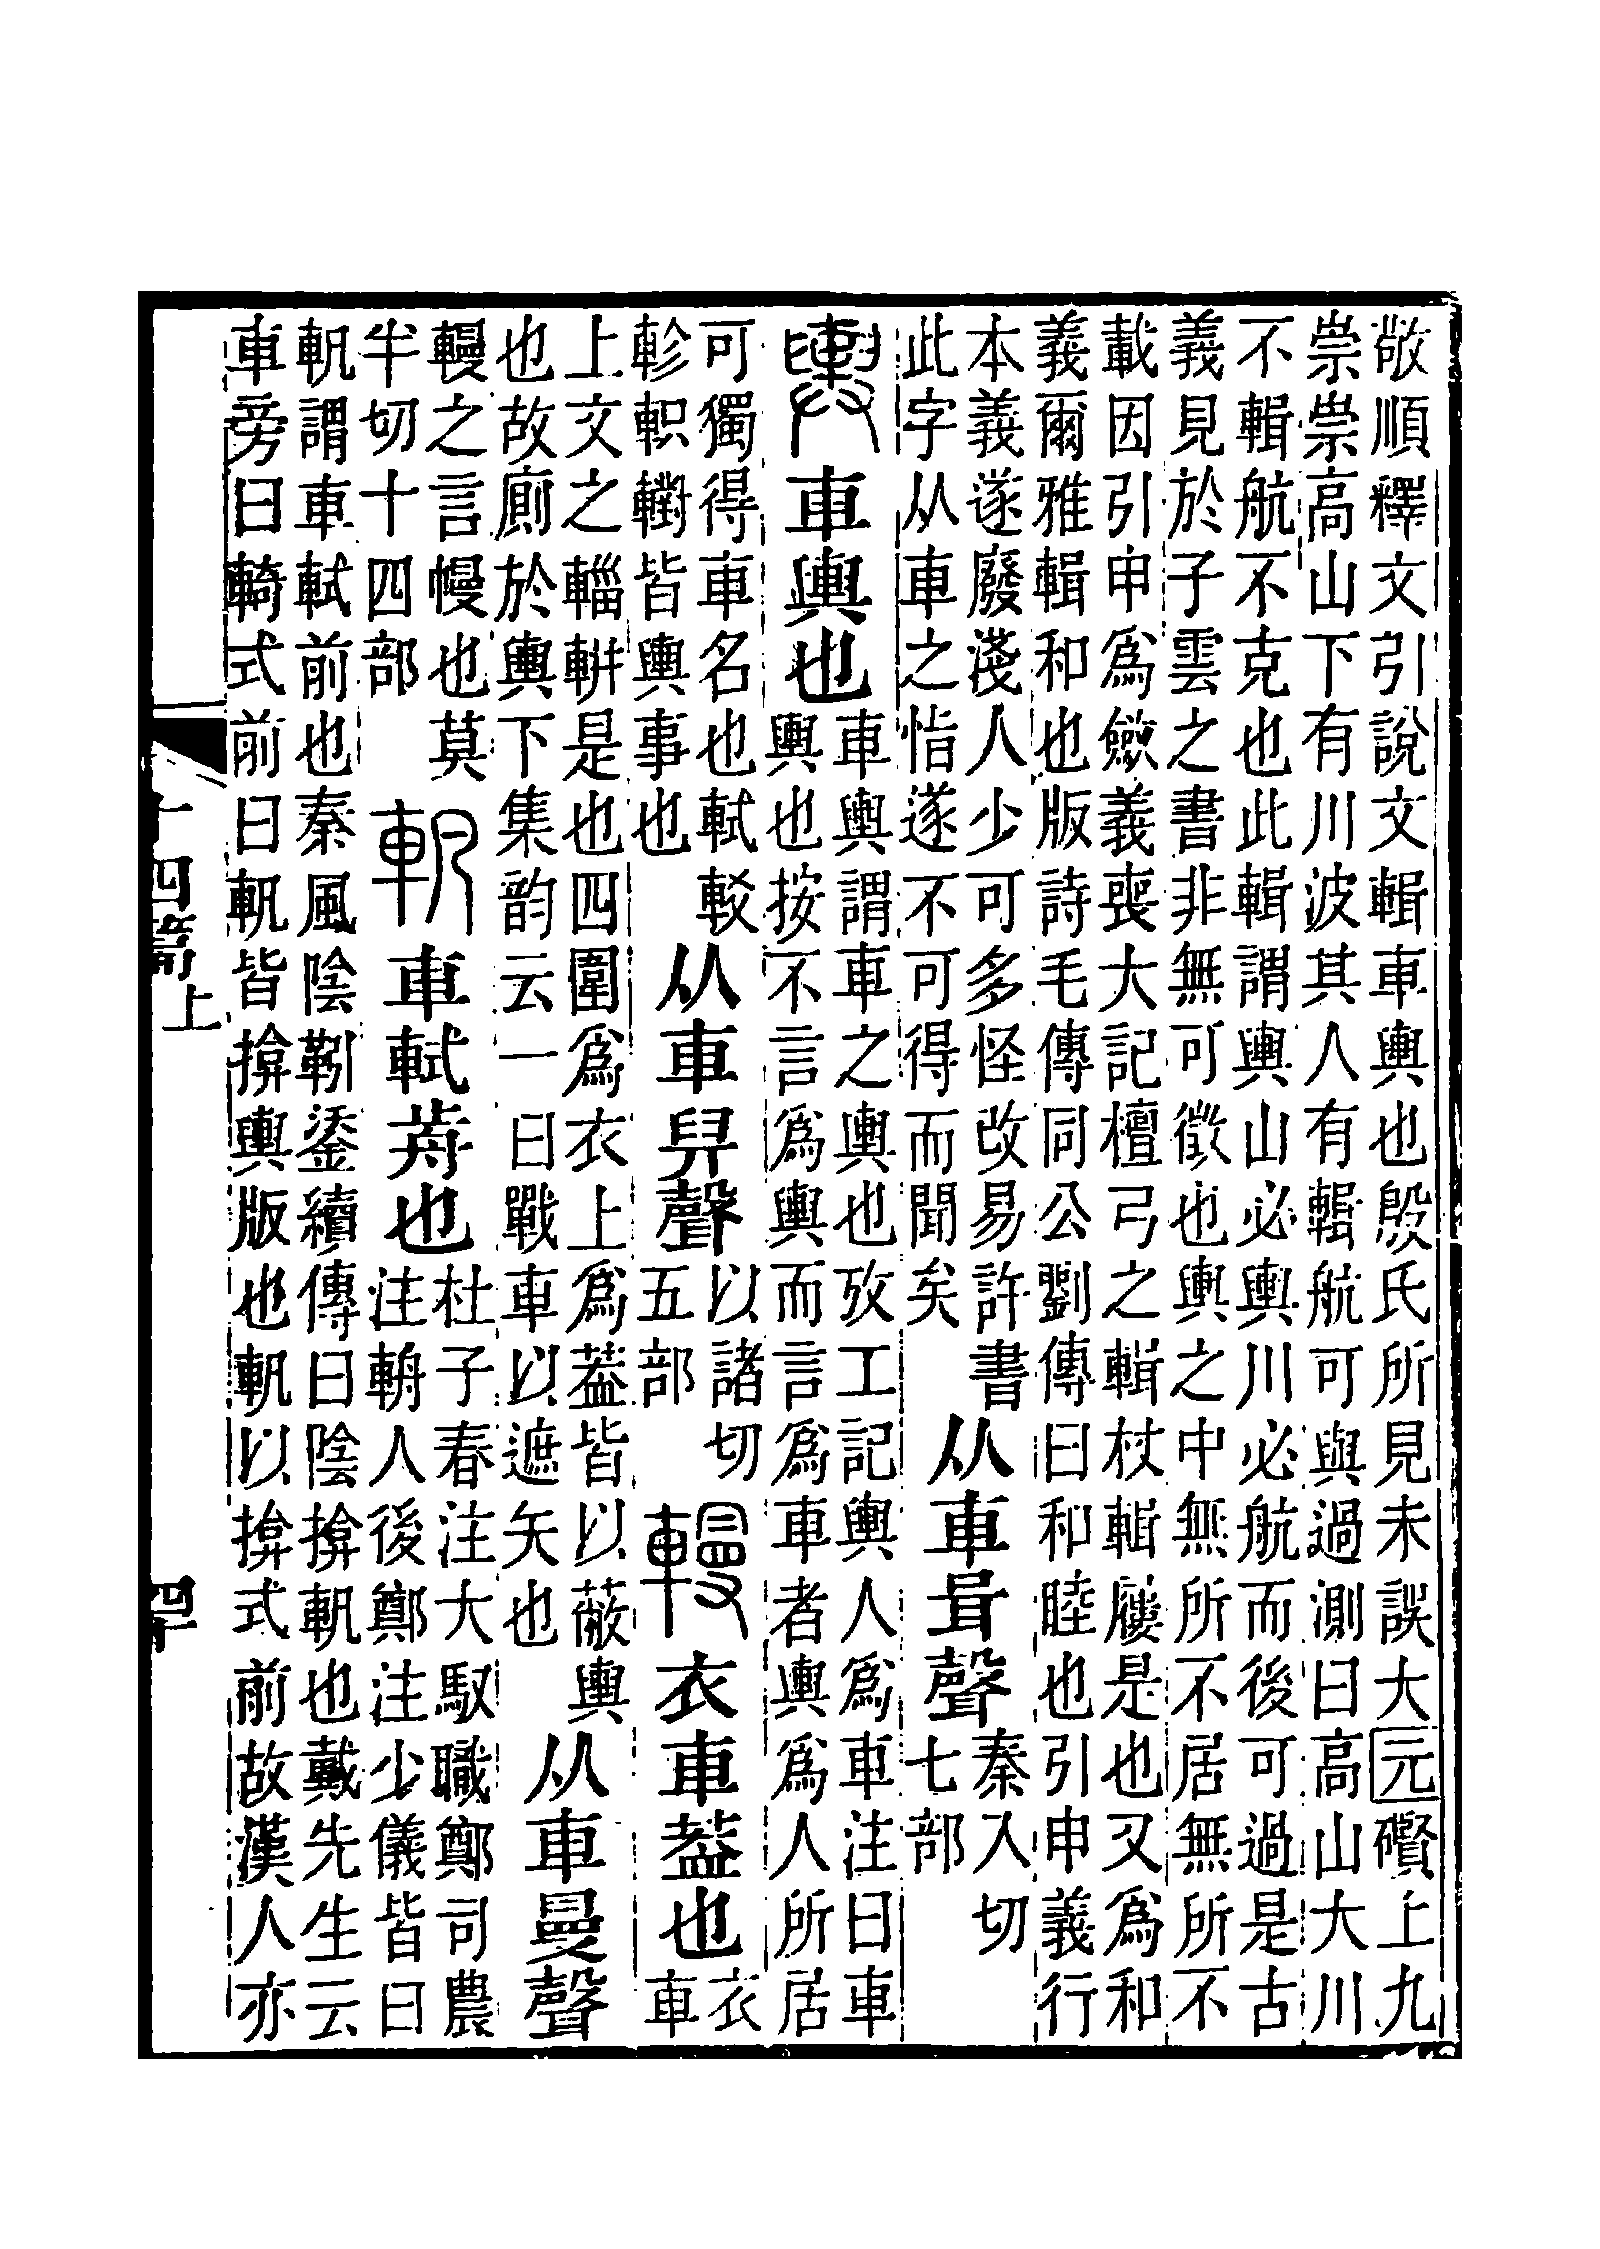 敬順釋文引說文輯車輿也殷氏所見未誤大元礥上九
崇崇高山下有川波其人有輯航可與過測曰高山大川
不輯航不克也此輯謂輿山必輿川必航而後可過是古
義見於子雲之書非無可徵也輿之中無所不居無所不
載因引申爲斂義喪大記檀弓之輯杖輯屨是也又爲和
義爾雅輯和也版詩毛傳同公劉傳曰和睦也引申義行
本義遂廢淺人少可多怪改易許書
此字从車之恉遂不可得而聞矣
从車咠聲
秦入切
七部
輿
車輿也
車輿謂車之輿也攷工記輿人爲車注曰車
輿也按不言爲輿而言爲車者輿爲人所居
可獨得車名也軾較
軫軹轛皆輿事也
从車舁聲
以諸切
五部
䡬
衣車葢也
衣
車
上文之輜軿是也四圍爲衣上爲葢皆以蔽輿
也故廁於輿下集韵云一曰戰車以遮矢也
从車曼聲
䡬之言幔也莫
半切十四部
軓
車軾歬也
杜子春注大馭職鄭司農
注輈人後鄭注少儀皆曰
軓謂車軾前也秦風陰靷鋈續傳曰陰揜軓也戴先生云
車旁曰輢式前曰軓皆揜輿版也軓以揜式前故漢人亦
十四篇上
四十